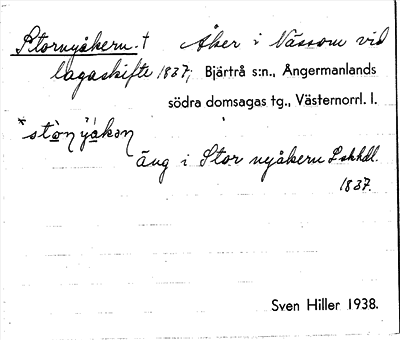 Stornyåkern. † Åker i Nässom vid
lagaskifte 1837; Bjärtrå s:n., Ångermanlands
södra domsagas tg., Västernorrl. l.
äng i Stor nyåkern Lskhdl.
1837.
Sven Hiller 1938.